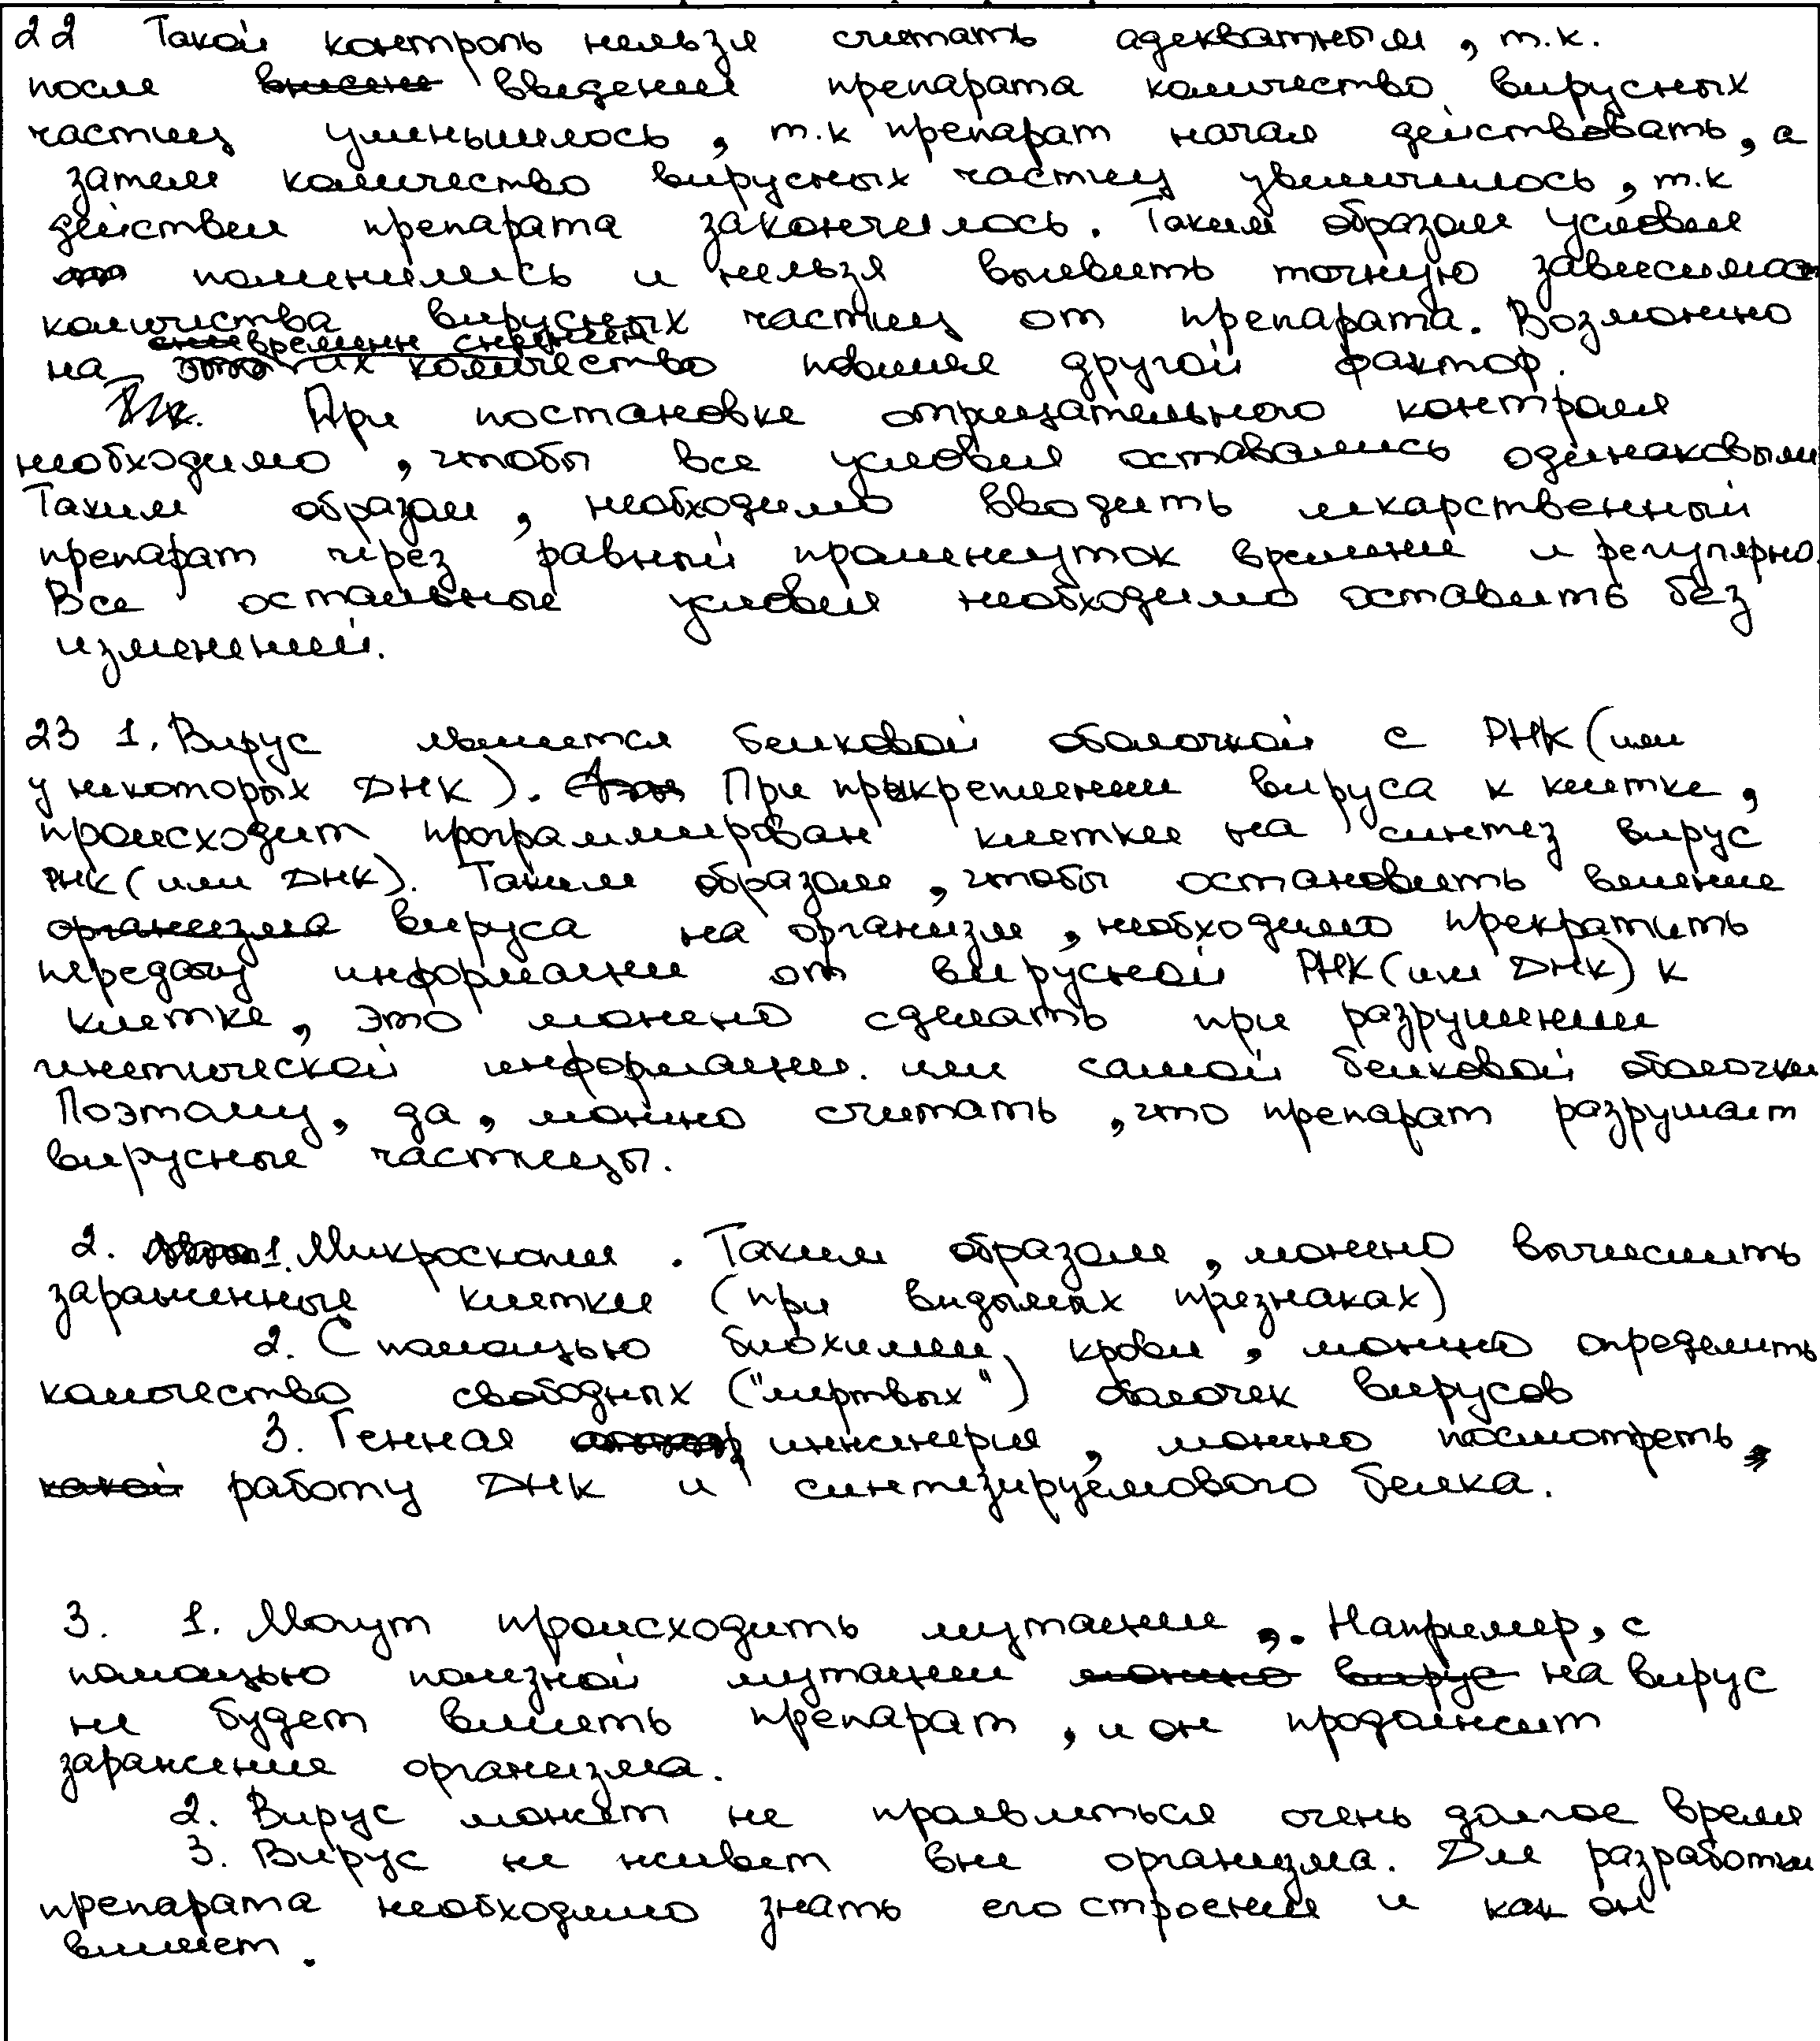 22 Такой контроль нельзя считать адекватным, т.к.
после введения препарата количество вирусных
частиц уменьшилось, т.к препарат начал действовать, а
затем количество вирусных частиц увеличилось, т.к
действие препарата закончилось. Таким образом условия
поменялись и нельзя выявить точную зависимос
количества вирусных частиц от препарата. Возможно
на их количество повлиял другой фактор.
При постановке отрицательного контроля
необходимо, чтобы все условия оставались одинаковыми
Таким образом, необходимо вводить лекарственный
препарат через равный промежуток времени и регулярно.
Все остальные условия необходимо оставить без
изменений.
23 1. Вирус является белковой оболочкой с РНК (или
у некоторых ДНК). При прыкреплении вируса к клетке,
происходит программирован клетки на синтез вирус
РНК (или ДНК). Таким образом, чтобы остановить влияние
вируса на организм, необходимо прекратить
передачу информации от вирусной РНК (или ДНК) к
клетке, это можно сделать при разрушении
гинетической информации. или самой белковой оболочки
Поэтому, да, можно считать, что препарат разрушает
вирусные частицы.
2. 1. Микроскопия. Таким образом, можно вычислить
зараженные клетки (при видымых признаках)
2. С помощью биохимии крови, можно определить
количество свободных ("мертвых") оболочек вирусов
3. Генная инженерия, можно посмотреть,
работу ДНК и синтезируемового белка.
3. 1. Могут происходить мутации,. Например, с
помощью полезной мутации на вирус
не будет влиять препарат, и он продолжит
заражение организма.
2. Вирус может не проявляться очень долгое время
3. Вирус не живет вне организма. Для разработки
препарата необходимо знать его строение и как он
влияет.